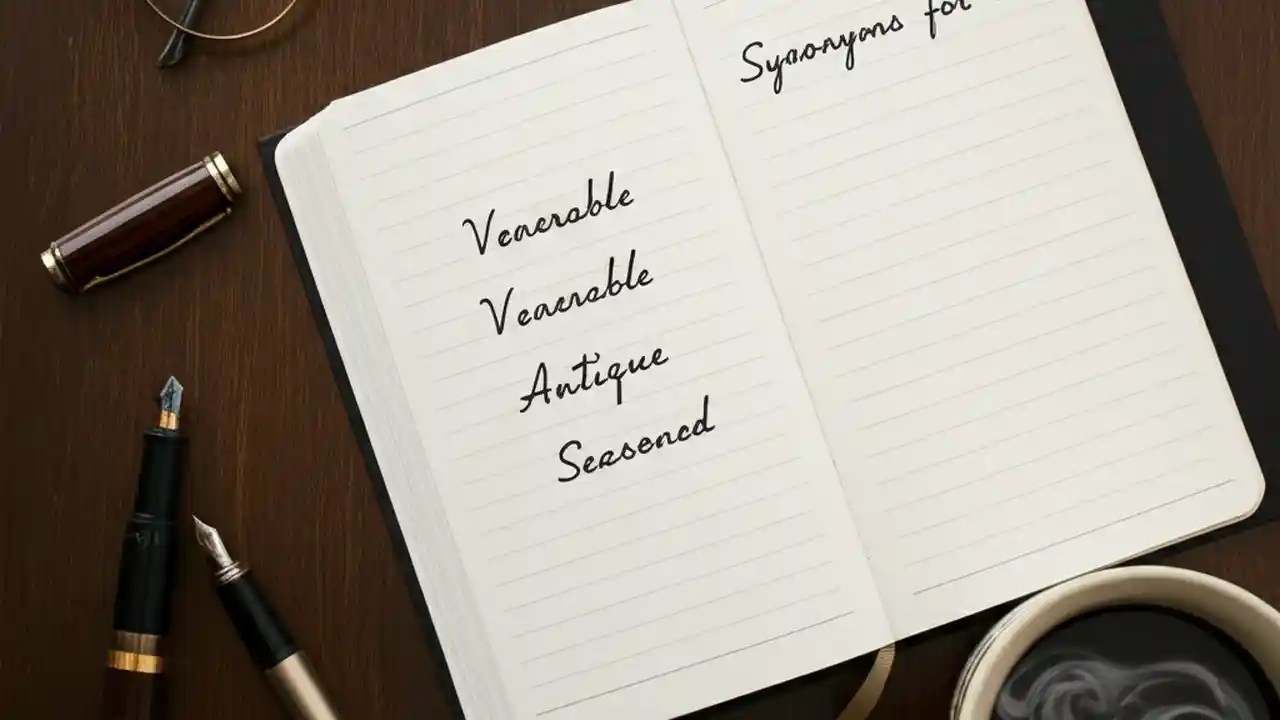 Venerable
Venerable
Antique
Seasoned
Synonyms for